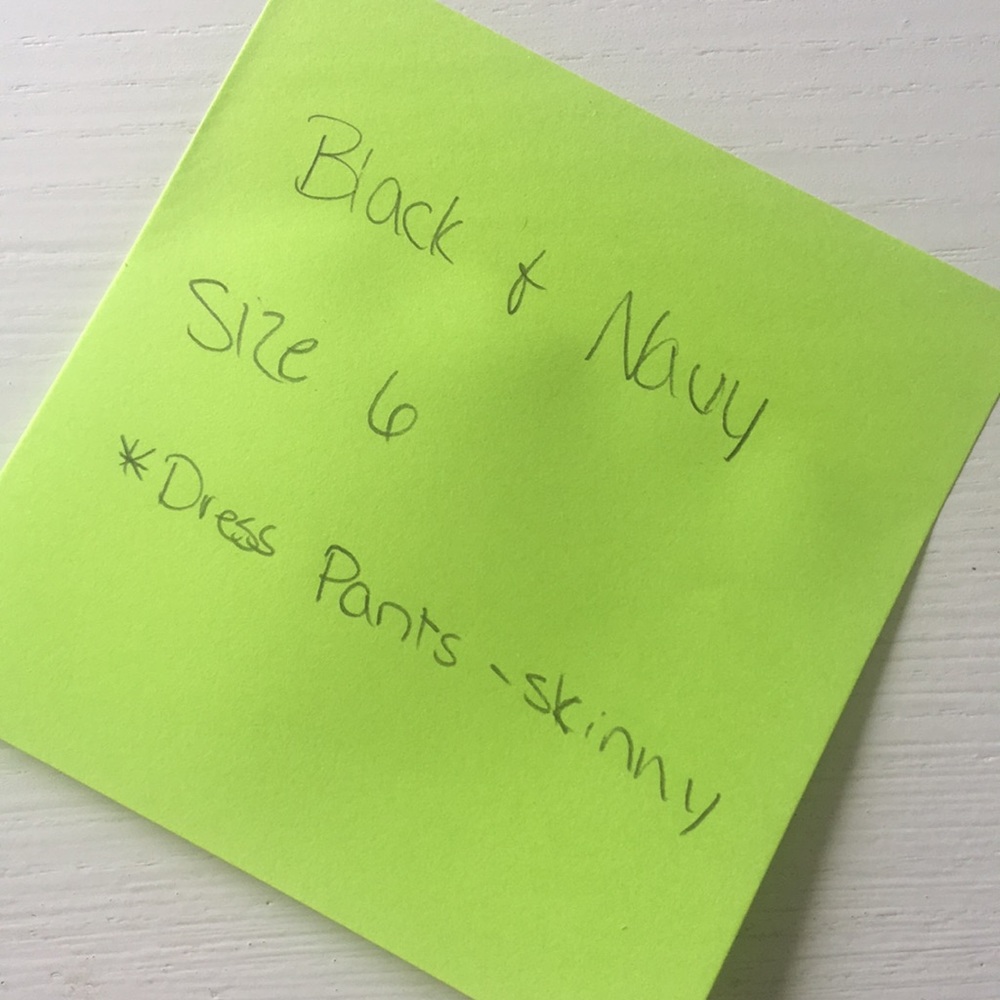 Black & Navy
Size 6
*Dress Pants - skinny